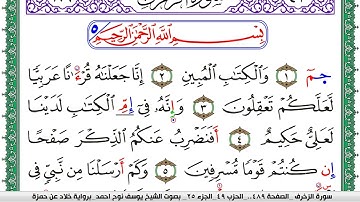 بِسْمِ اللَّهِ الرَّحْمَٰنِ الرَّحِيمِ
حمٓ ١ وَالْكِتَابِ الْمُبِينِ ٢ إِنَّا جَعَلْنَاهُ قُرْءَٰنًا عَرَبِيًّا
لَعَلَّكُمْ تَعْقِلُونَ ٣ وَإِنَّهُ فِي إِمِّ الْكِتَابِ لَدَيْنَا
لَعَلِيٌّ حَكِيمٌ ٤ أَفَنَضْرِبُ عَنكُمُ الذِّكْرَ صَفْحًا
إِن كُنتُمْ قَوْمًا مُّسْرِفِينَ ٥ وَكَمْ أَرْسَلْنَا مِن نَّبِيٍّ فِي
سورة الزخرف _الصفحة ٤٨٩_ الحزب ٤٩_ الجزء ٢٥_ بصوت الشيخ يوسف نوح احمد_ برواية خلاد عن حمزة